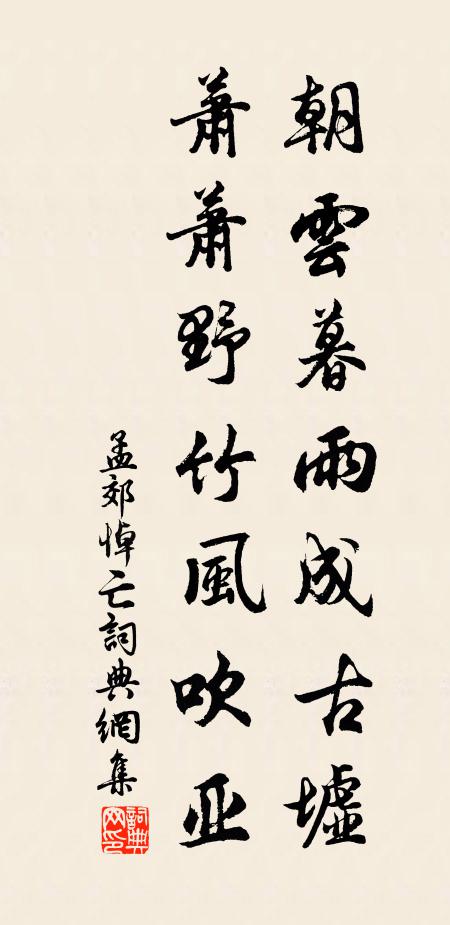 朝雲暮雨成古墟
蕭蕭野竹風吹亚
孟郊悼亡詞典網集
詞典網印